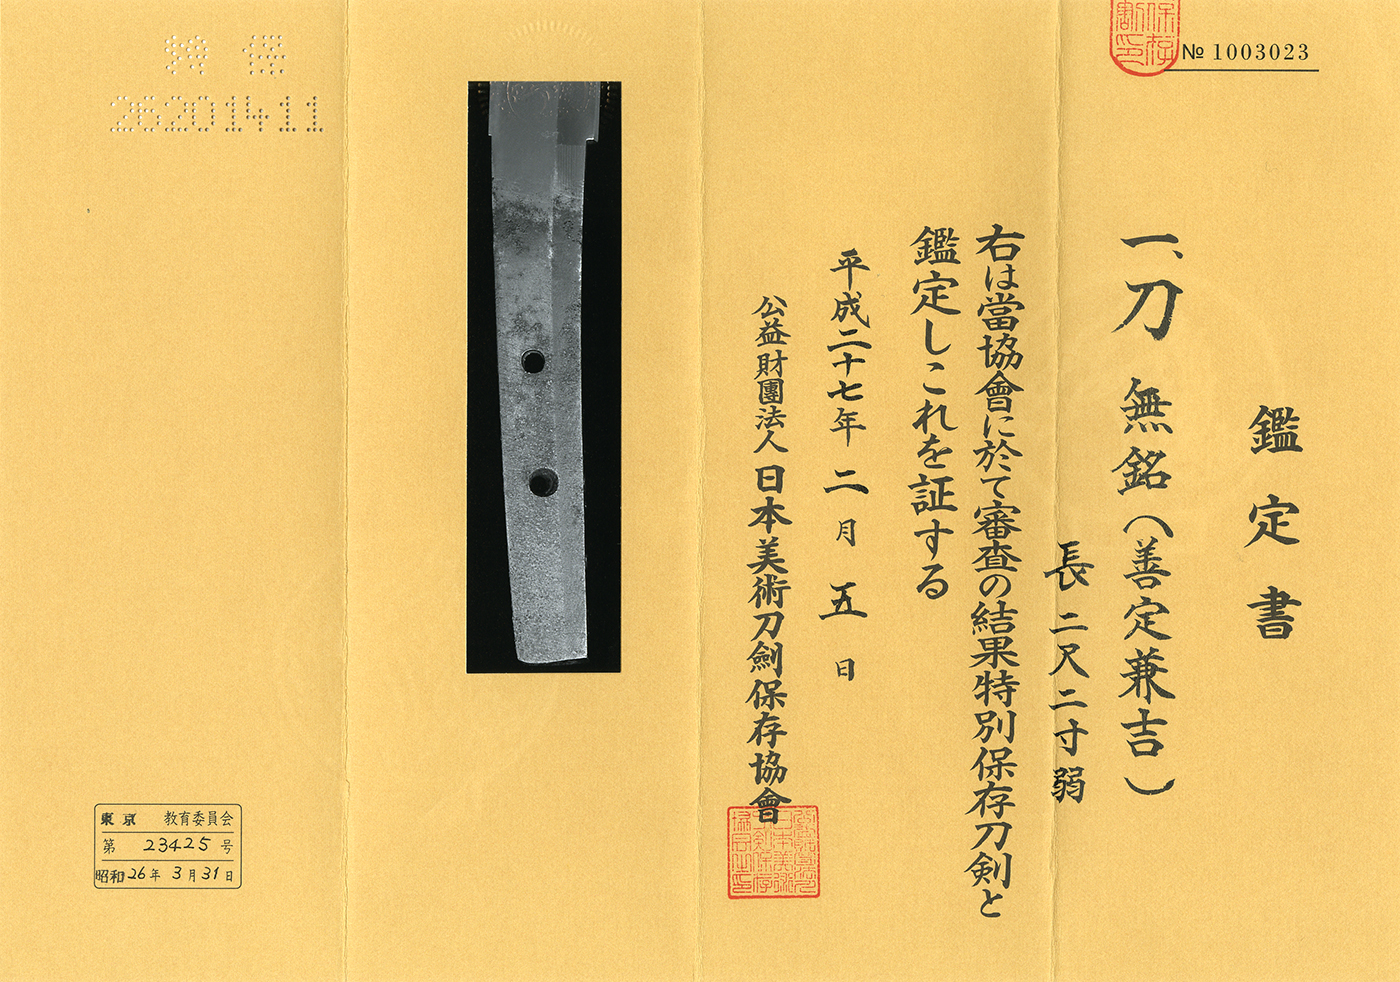 № 1003023
鑑定書
一、刀 無銘（善定兼吉）
長二尺二寸弱
右は當協會に於て審査の結果特別保存刀剣と
鑑定しこれを証する
平成二十七年二月五日
公益財團法人 日本美術刀劍保存協會
特保
26201411
東京 教育委員会
第 23425 号
昭和26年3月31日